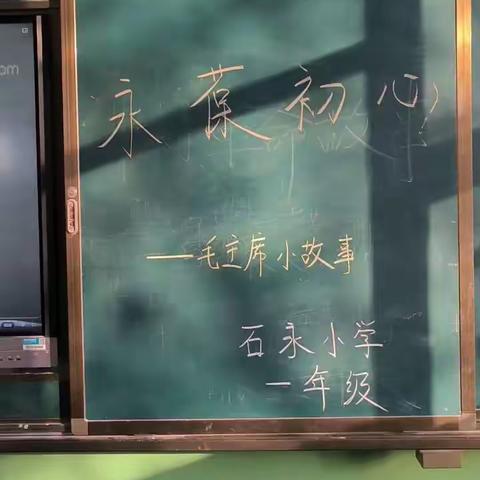 永葆初心
——毛主席小故事
石永小学
一年级